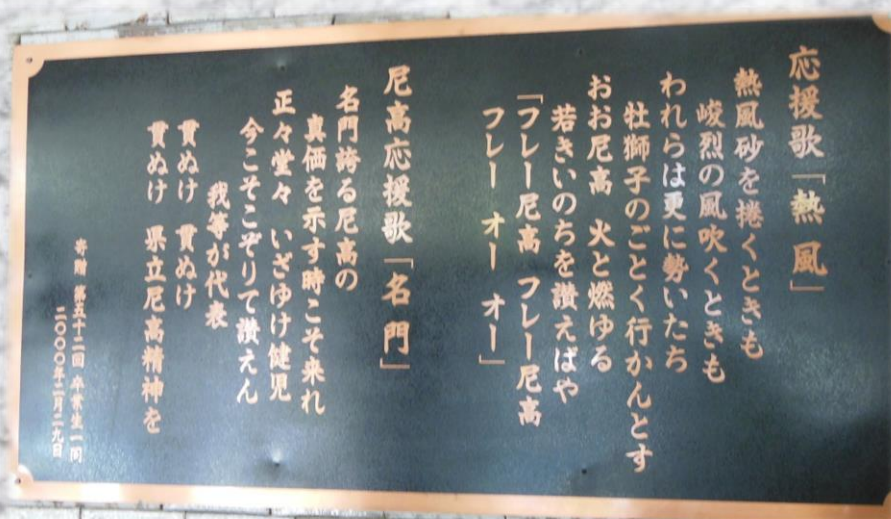 応援歌「熱風」
熱風砂を捲くときも
峻烈の風吹くときも
われらは更に勢いたち
牡獅子のごとく行かんとす
おお尼高　火と燃ゆる
若きいのちを讃えばや
「フレー尼高　フレー尼高
フレー　オー　オー」
尼高応援歌「名門」
名門誇る尼高の
真価を示す時こそ来れ
正々堂々　いざゆけ健児
今こそこぞりて讃えん
我等が代表
貫ぬけ　貫ぬけ
貫ぬけ　県立尼高精神を
寄贈　第五十二回　卒業生一同
二〇〇〇年二月二九日